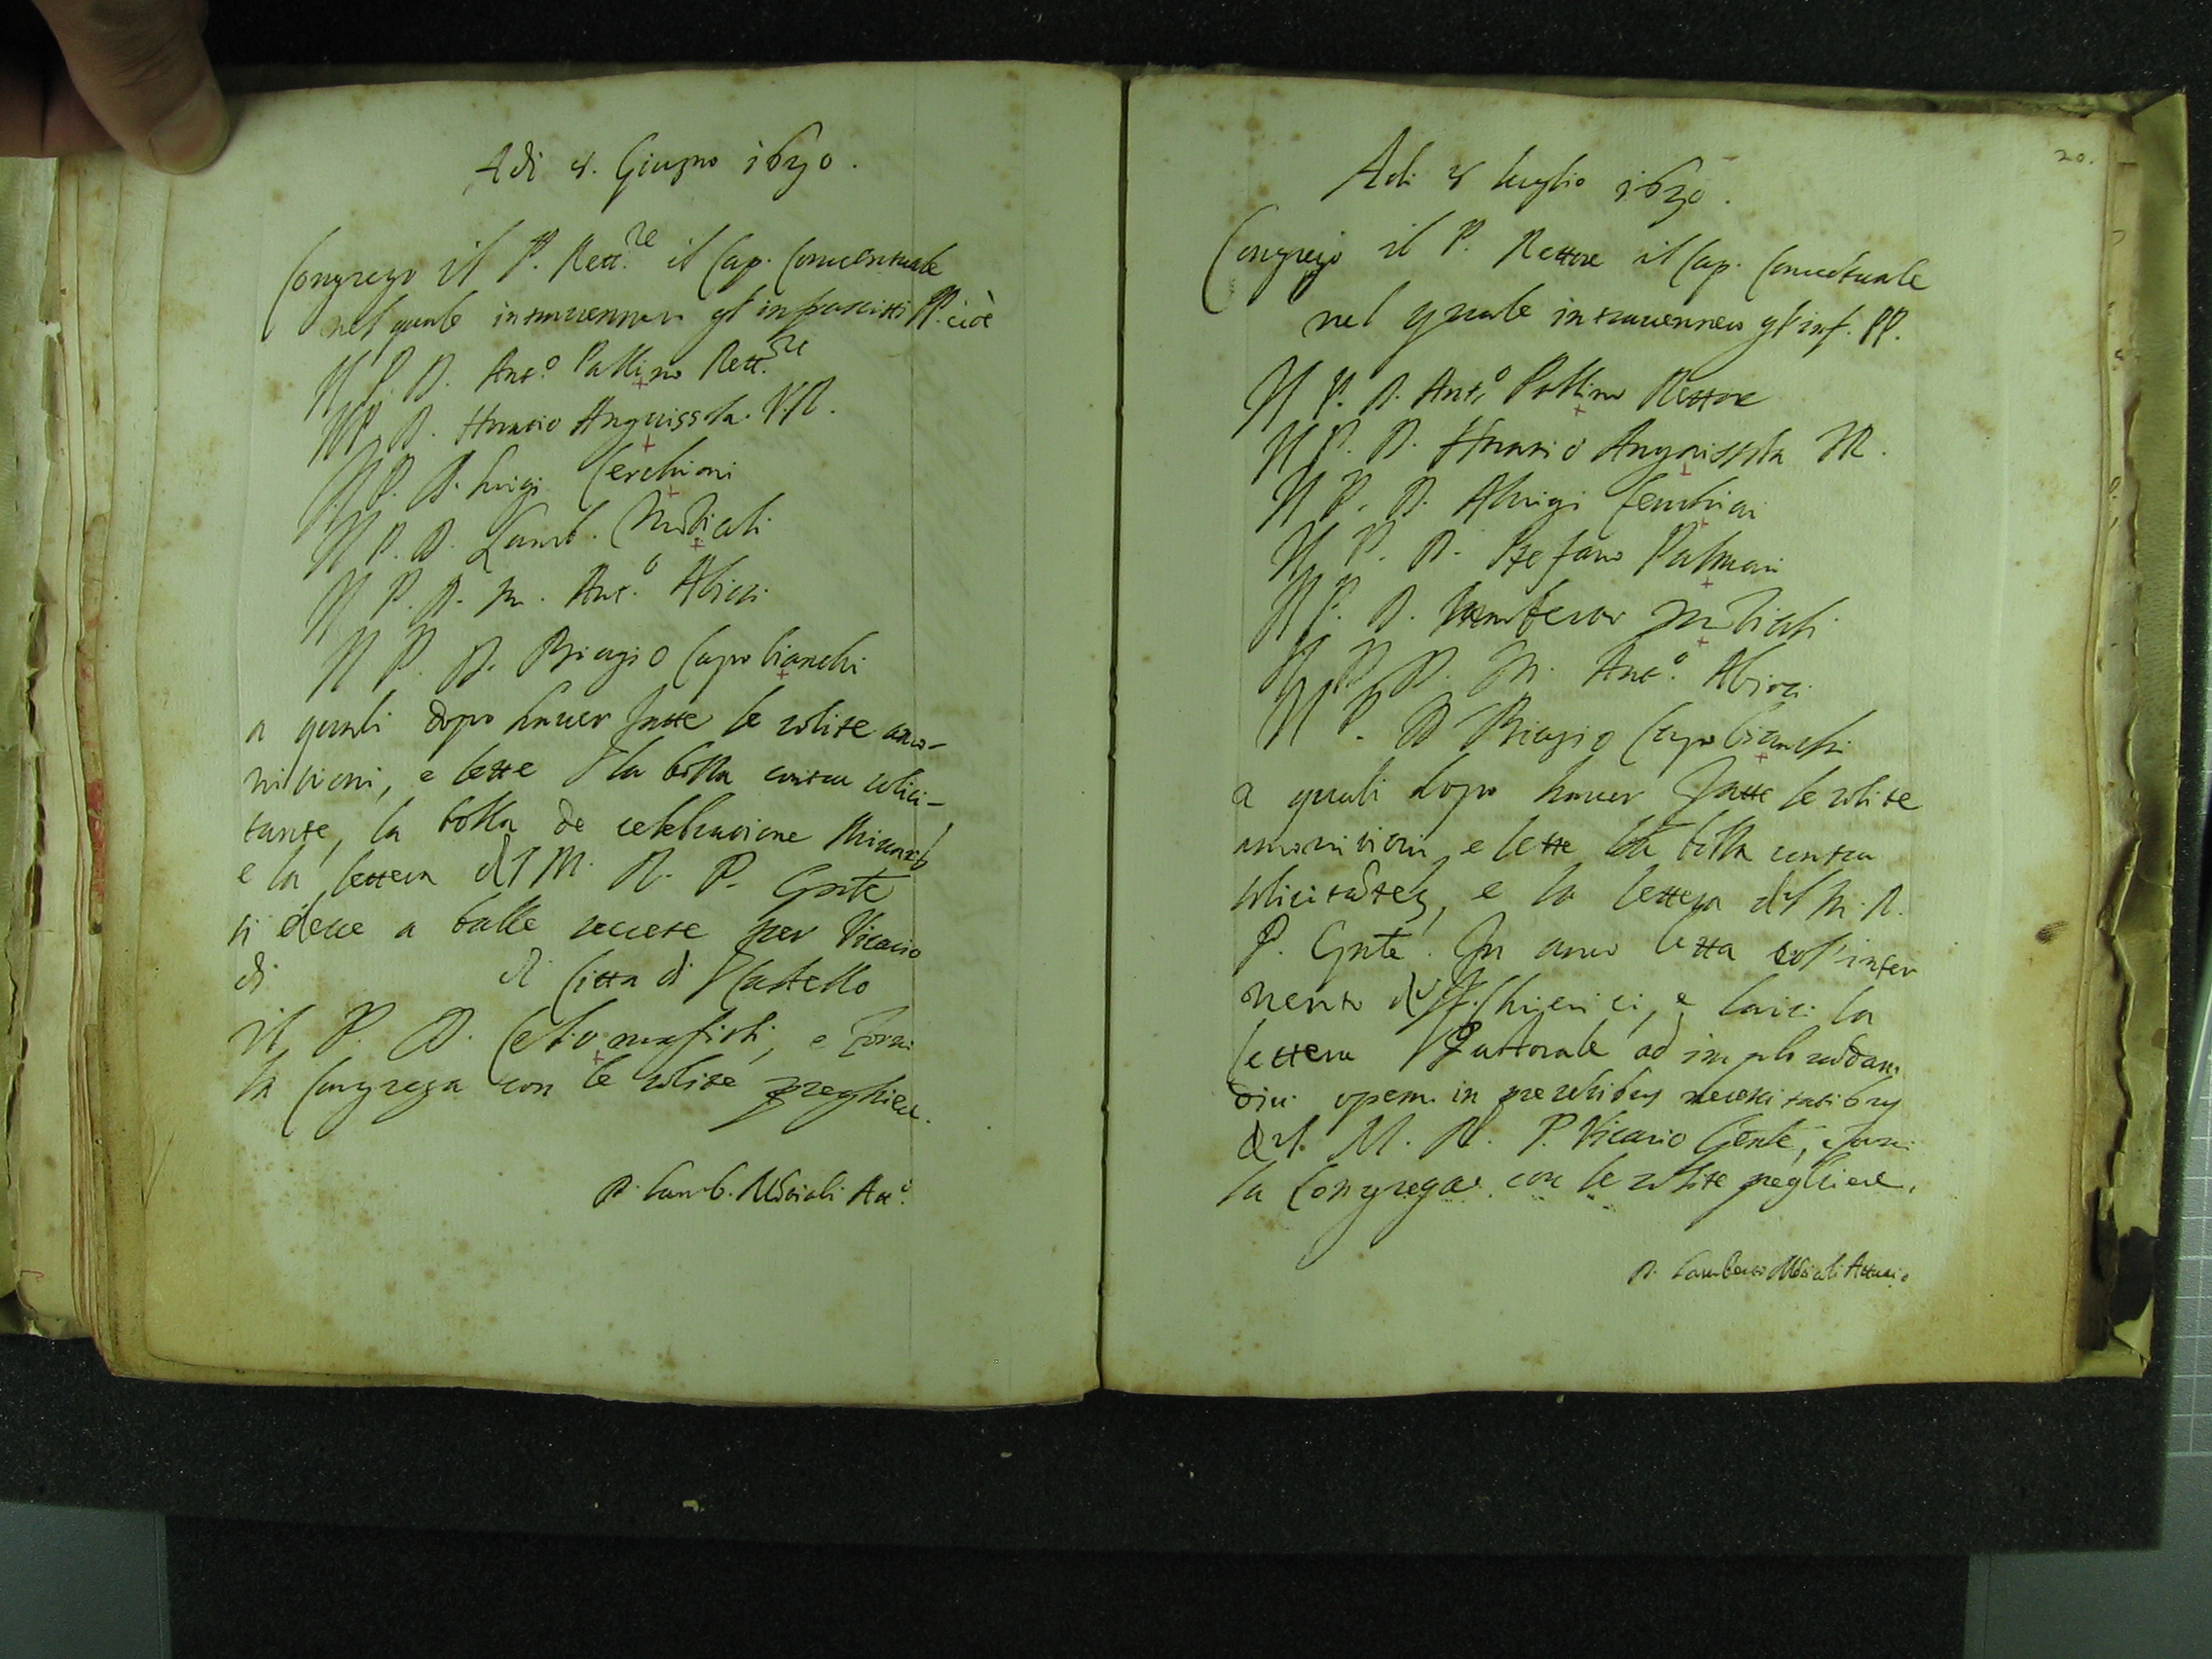 Adi 4. Giugno 1630.
Congregò il P. Rett.re il Cap. Conventuale
nel quale intravennero gl' infrascitti PP. cioè
Il P. D. Ant.o Pallino Rett.re
Il P. D. Horatio Anguissola. V.R.
Il P. D. Luigi Cerchioni
Il P. D. Lamb.
Il P. D. M. Ant.o Abiosi
Il P. D. Biagio Capobianchi
a quali dopo haver fatte le solite amo-
nitioni, e lette la bolla contra solici-
tante, la bolla de celebratione
e la lettera del M. R. P. Gnte
si dette a balle secrete per Vicario
di di Citta di Castello
il P. D. e forni
la Congrega con le solite preghiere.
D. Lamb. Att.o
20.
Adi 4 luglio 1630.
Congregò il P. Rettore il Cap. Conventuale
nel quale intravennero gl' inf. PP.
Il P. D. Ant.o Pallino Rettore
Il P. D. Horatio Anguissola VR.
Il P. D. Aluigi Cerchioni
Il P. D. Stefano
Il P. D. Lamberto
Il P. D. M. Ant.o Abiosi
Il P. D. Biagio Capobianchi
a quali dopo haver fatte le solite
amonitioni e lette la bolla contra
solicitantes, e la lettera del M. R.
P. Gnte. Fu anco letta coll' inter
vento de Chierici, e laici la
lettera Pastorale ad implorandam
opem in necessitatibus
del M. R. P. Vicario Genle, e forni
la Congrega con le solite preghiere.
D. Lamberto Attuario